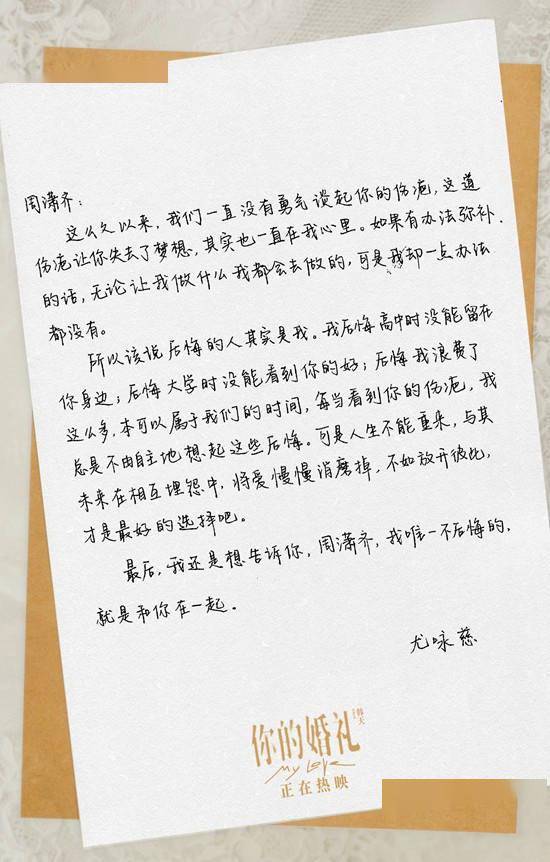 周潇齐：
这么久以来，我们一直没有勇气谈起你的伤疤，这道
伤疤让你失去了梦想，其实也一直在我心里。如果有办法弥补
的话，无论让我做什么我都会去做的，可是我却一点办法
都没有。
所以该说后悔的人其实是我。我后悔高中时没能留在
你身边；后悔大学时没能看到你的好；后悔我浪费了
这么多，本可以属于我们的时间，每当看到你的伤疤，我
总是不由自主地想起这些后悔。可是人生不能重来，与其
未来在相互埋怨中，将爱慢慢消磨掉，不如放开彼此，
才是最好的选择吧。
最后，我还是想告诉你，周潇齐，我唯一不后悔的，
就是和你在一起。
尤咏慈
你的婚礼
My Love
正在热映